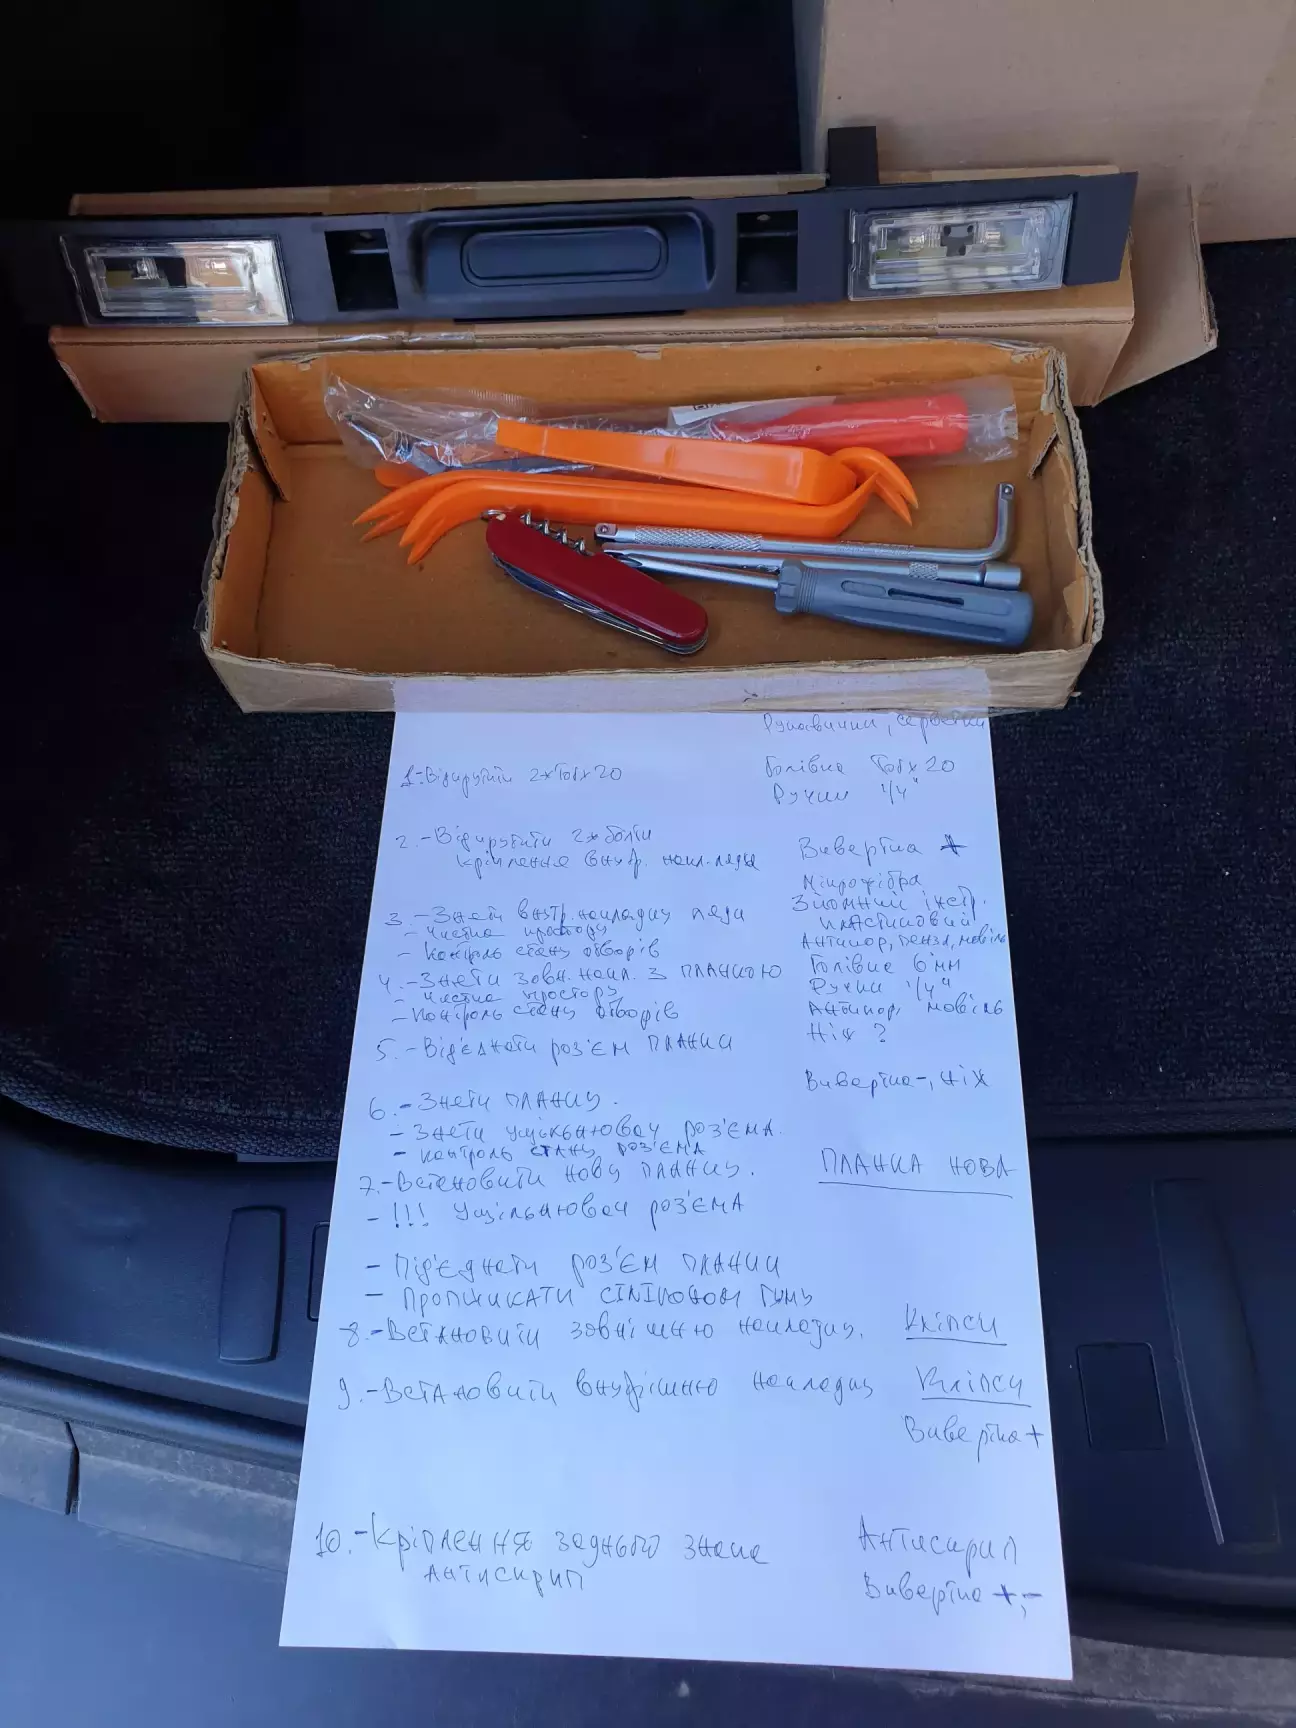 Рукавички, серветки
1.-Відкрутити 2*Torx20
Голівка Torx 20
Ручки 1/4"
2.-Відкрутити 2*болти
кріплення внутр. накл. ляди
Викрутка +
Мікрофібра
3.-Зняти внутр. накладку ляди
Зйомний інстр.
- чистка простору
пластиковий
- Контроль стану отворів
Антикор, пензл, мовіль
4.-Зняти зовн. накл. з планкою
Голівка 6 мм
- чистка простору
Ручки 1/4"
- Контроль стану отворів
Антикор, мовіль
Ніж ?
5.-Від'єднати роз'єм планки
Викрутка -, ніж
6.-Зняти планку.
- Зняти ущільнювач роз'єма.
- контроль стану роз'єма
7.-Встановити нову планку.
ПЛАНКА НОВА
- !!! ущільнювач роз'єма
- Під'єднати роз'єм планки
- Пропшикати сіліконом гуму
8.-Встановити зовнішню накладку.
Кліпси
9.-Встановити внутрішню накладку
Кліпси
Викрутка +
10.-Кріплення заднього знака
Антискрип
Антискрип
Викрутка +,-